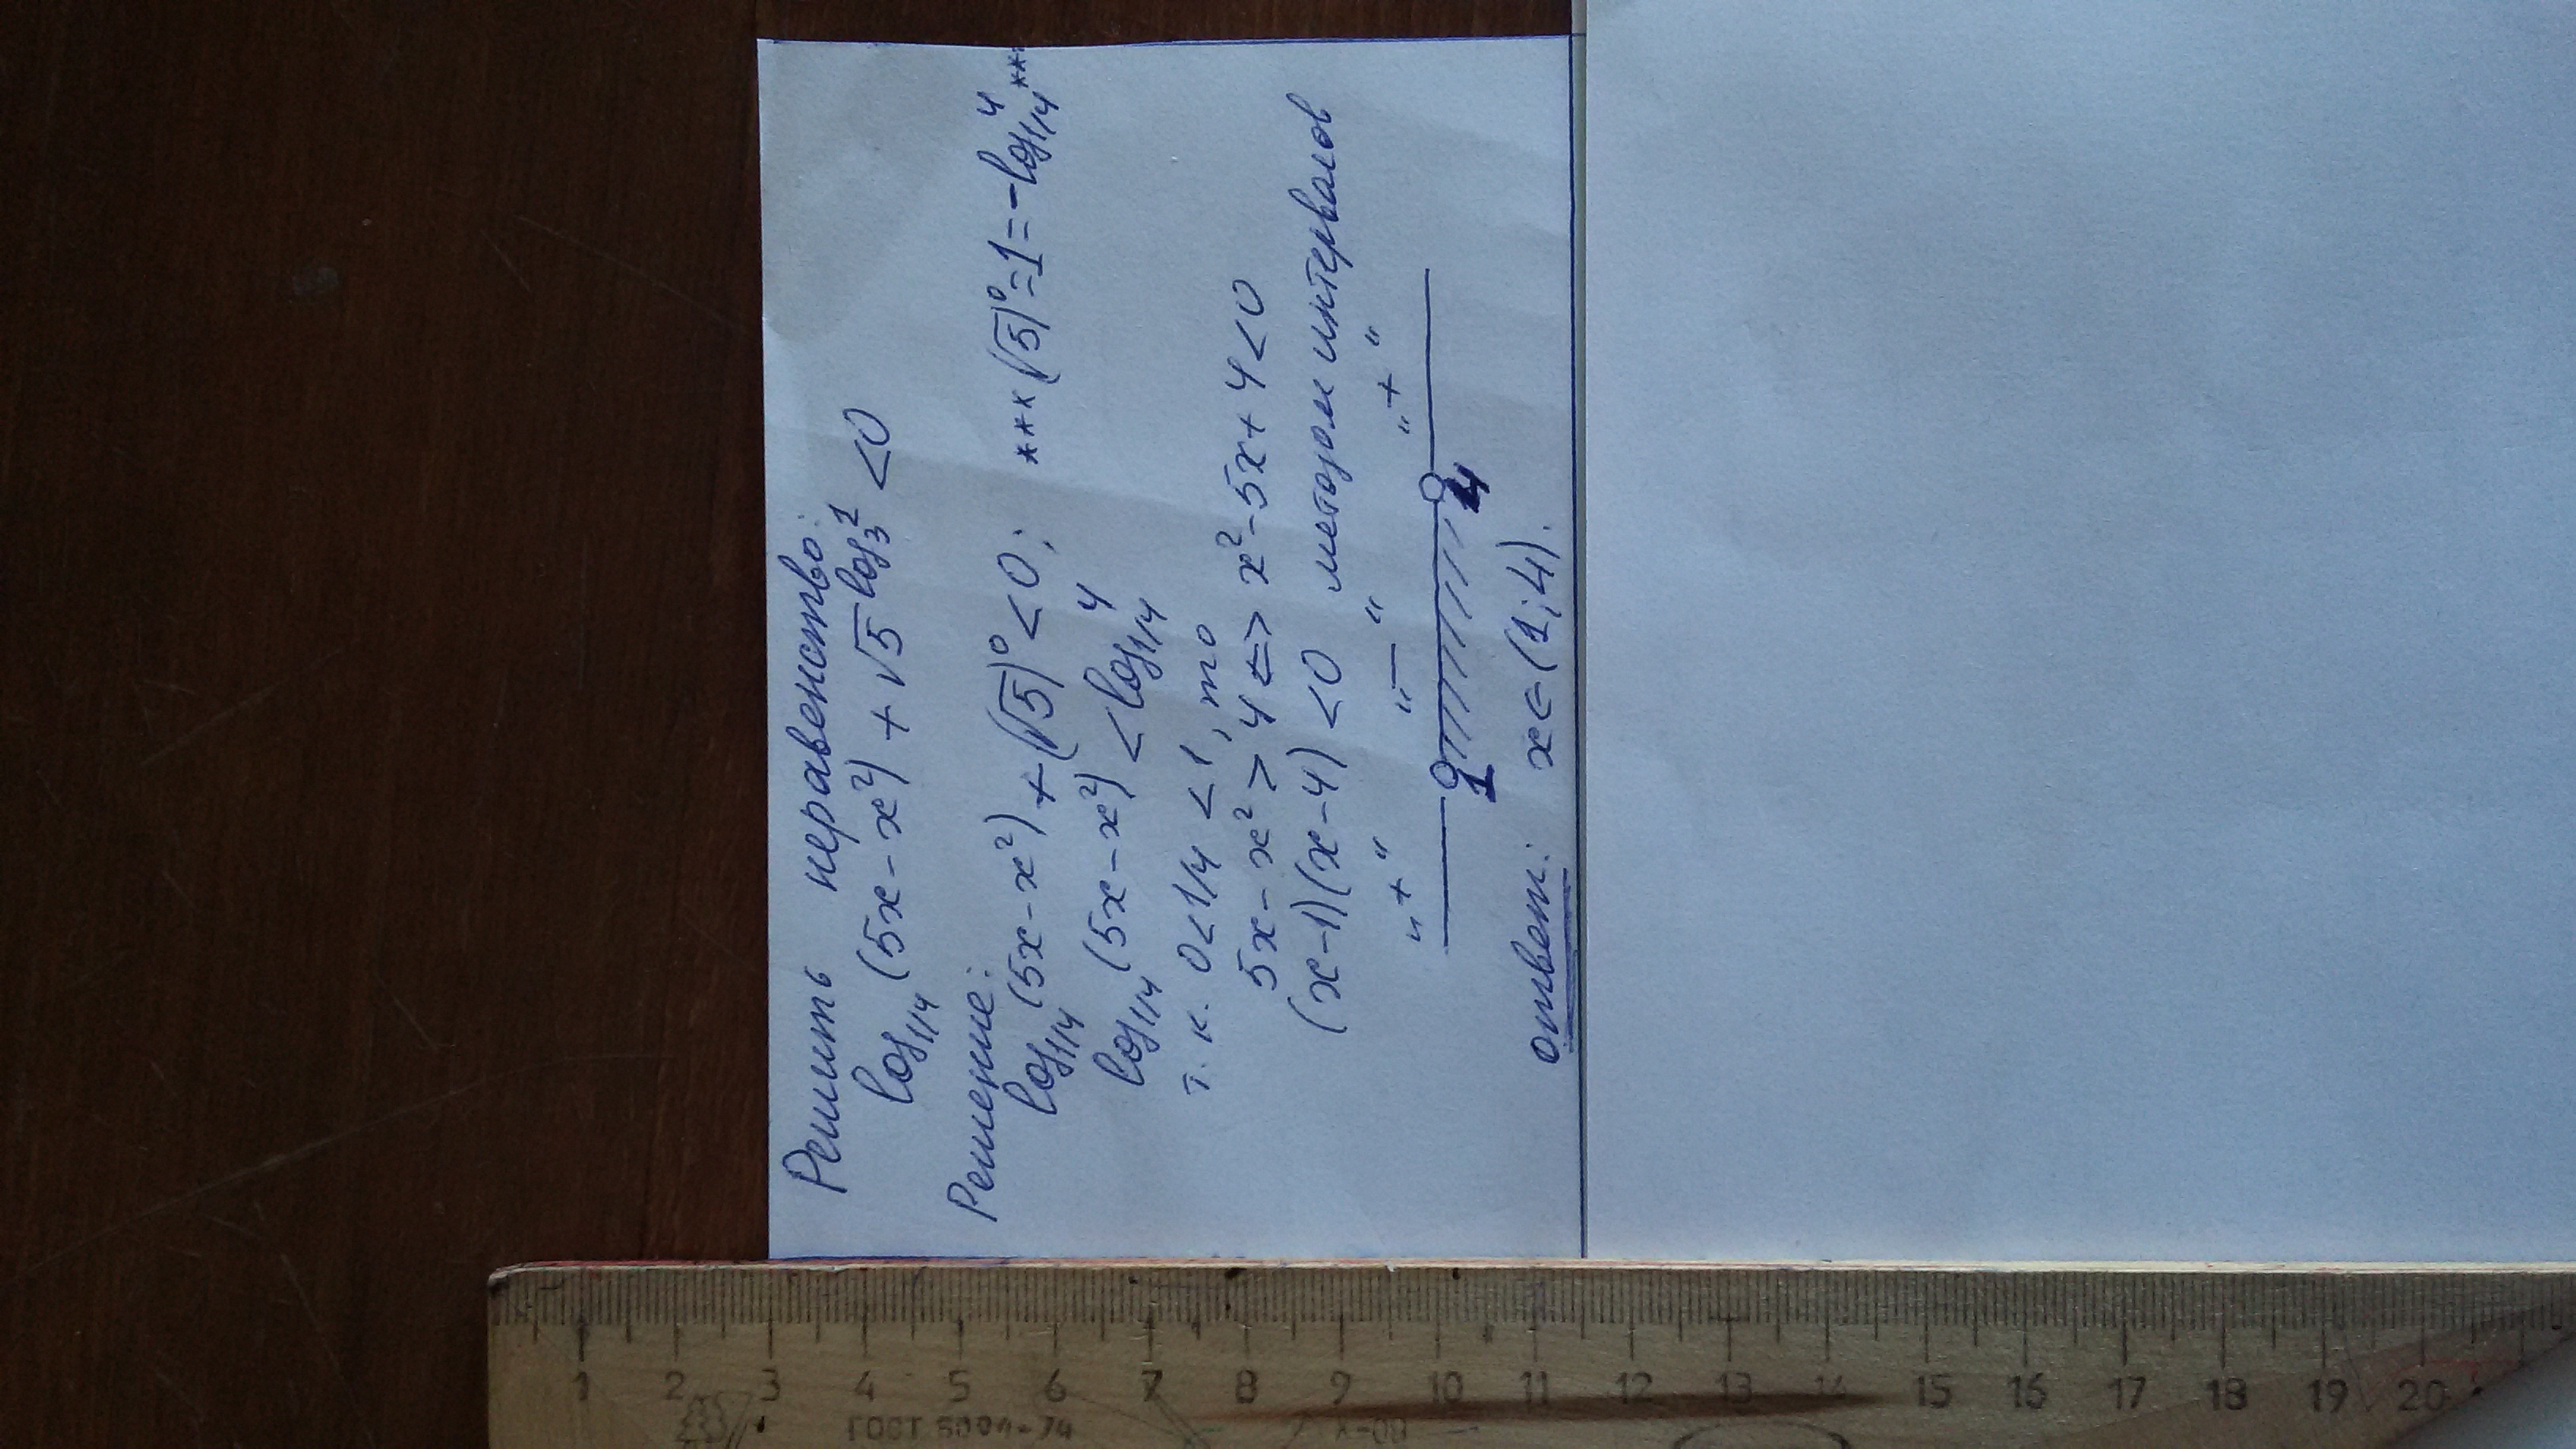 Решить неравенство:
log₁/₄(5x-x²)+√5^log₃1 <0
Решение:
log₁/₄(5x-x²)+(√5)⁰<0; ***(√5)⁰=1=-log₁/₄4***
log₁/₄(5x-x²)<log₁/₄4
т.к. 0<1/4<1, то
5x-x²>4 <=> x²-5x+4<0
(x-1)(x-4)<0 методом интервалов
"+" "-" "+"
1 4
ответ: x∈(1;4).
1 2 3 4 5 6 7 8 9 10 11 12 13 14 15 16 17 18 19 20
ГОСТ 5094-74